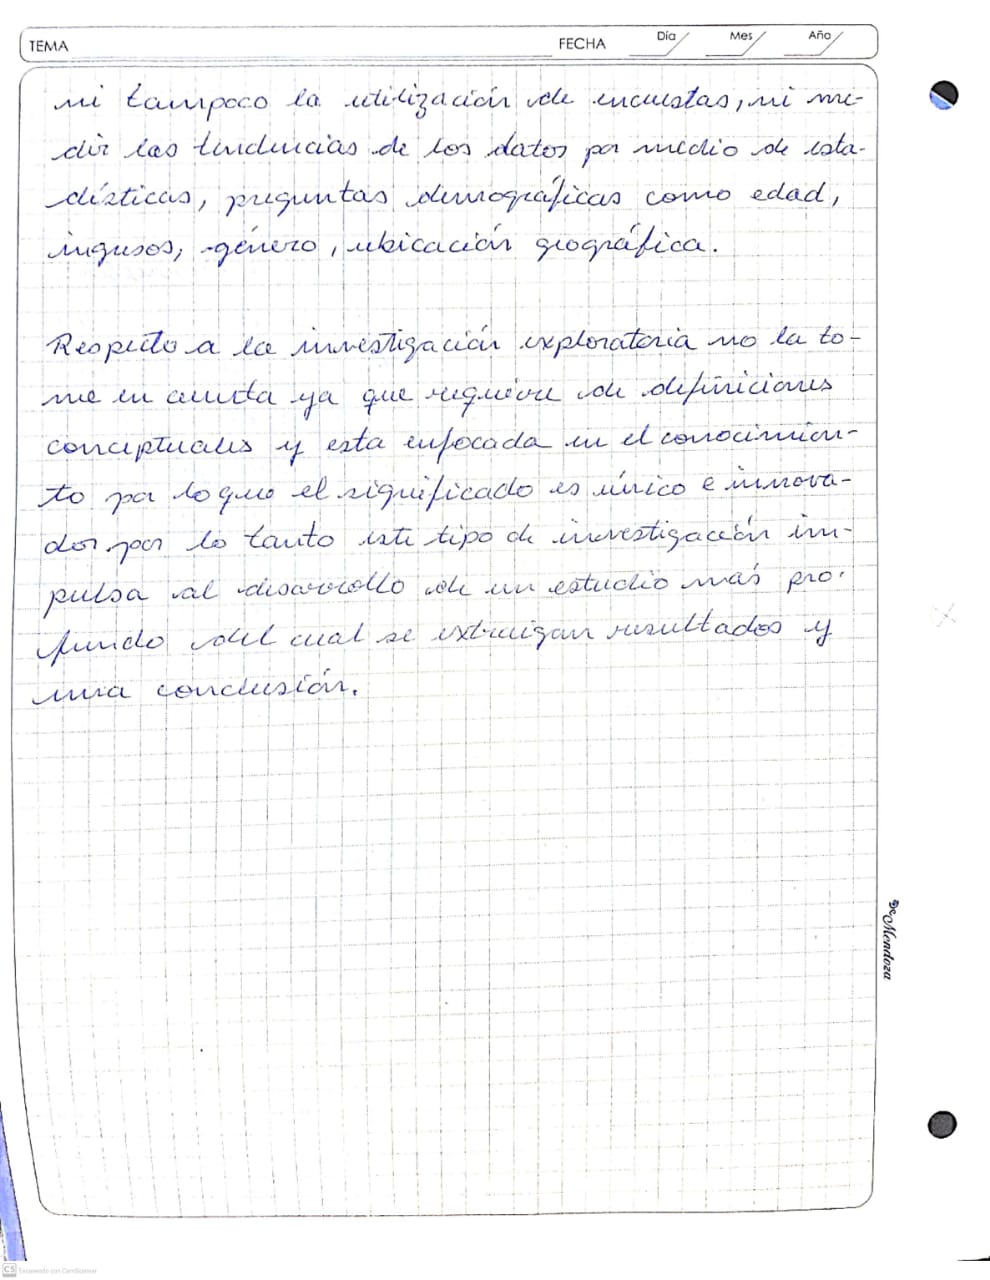 TEMA FECHA Día Mes Año
ni tampoco la utilización de encuestas, ni me-
dir las tendencias de los datos por medio de esta-
dísticas, preguntas demográficas como edad,
ingresos, género, ubicación geográfica.
Respecto a la investigación exploratoria no la to-
me en cuenta ya que requiere de definiciones
conceptuales y esta enfocada en el conocimien-
to por lo que el significado es único e innova-
dor por lo tanto este tipo de investigación im-
pulsa al desarrollo de un estudio más pro-
fundo del cual se extraigan resultados y
una conclusión.
De Mendoza
CS Escaneado con CamScanner